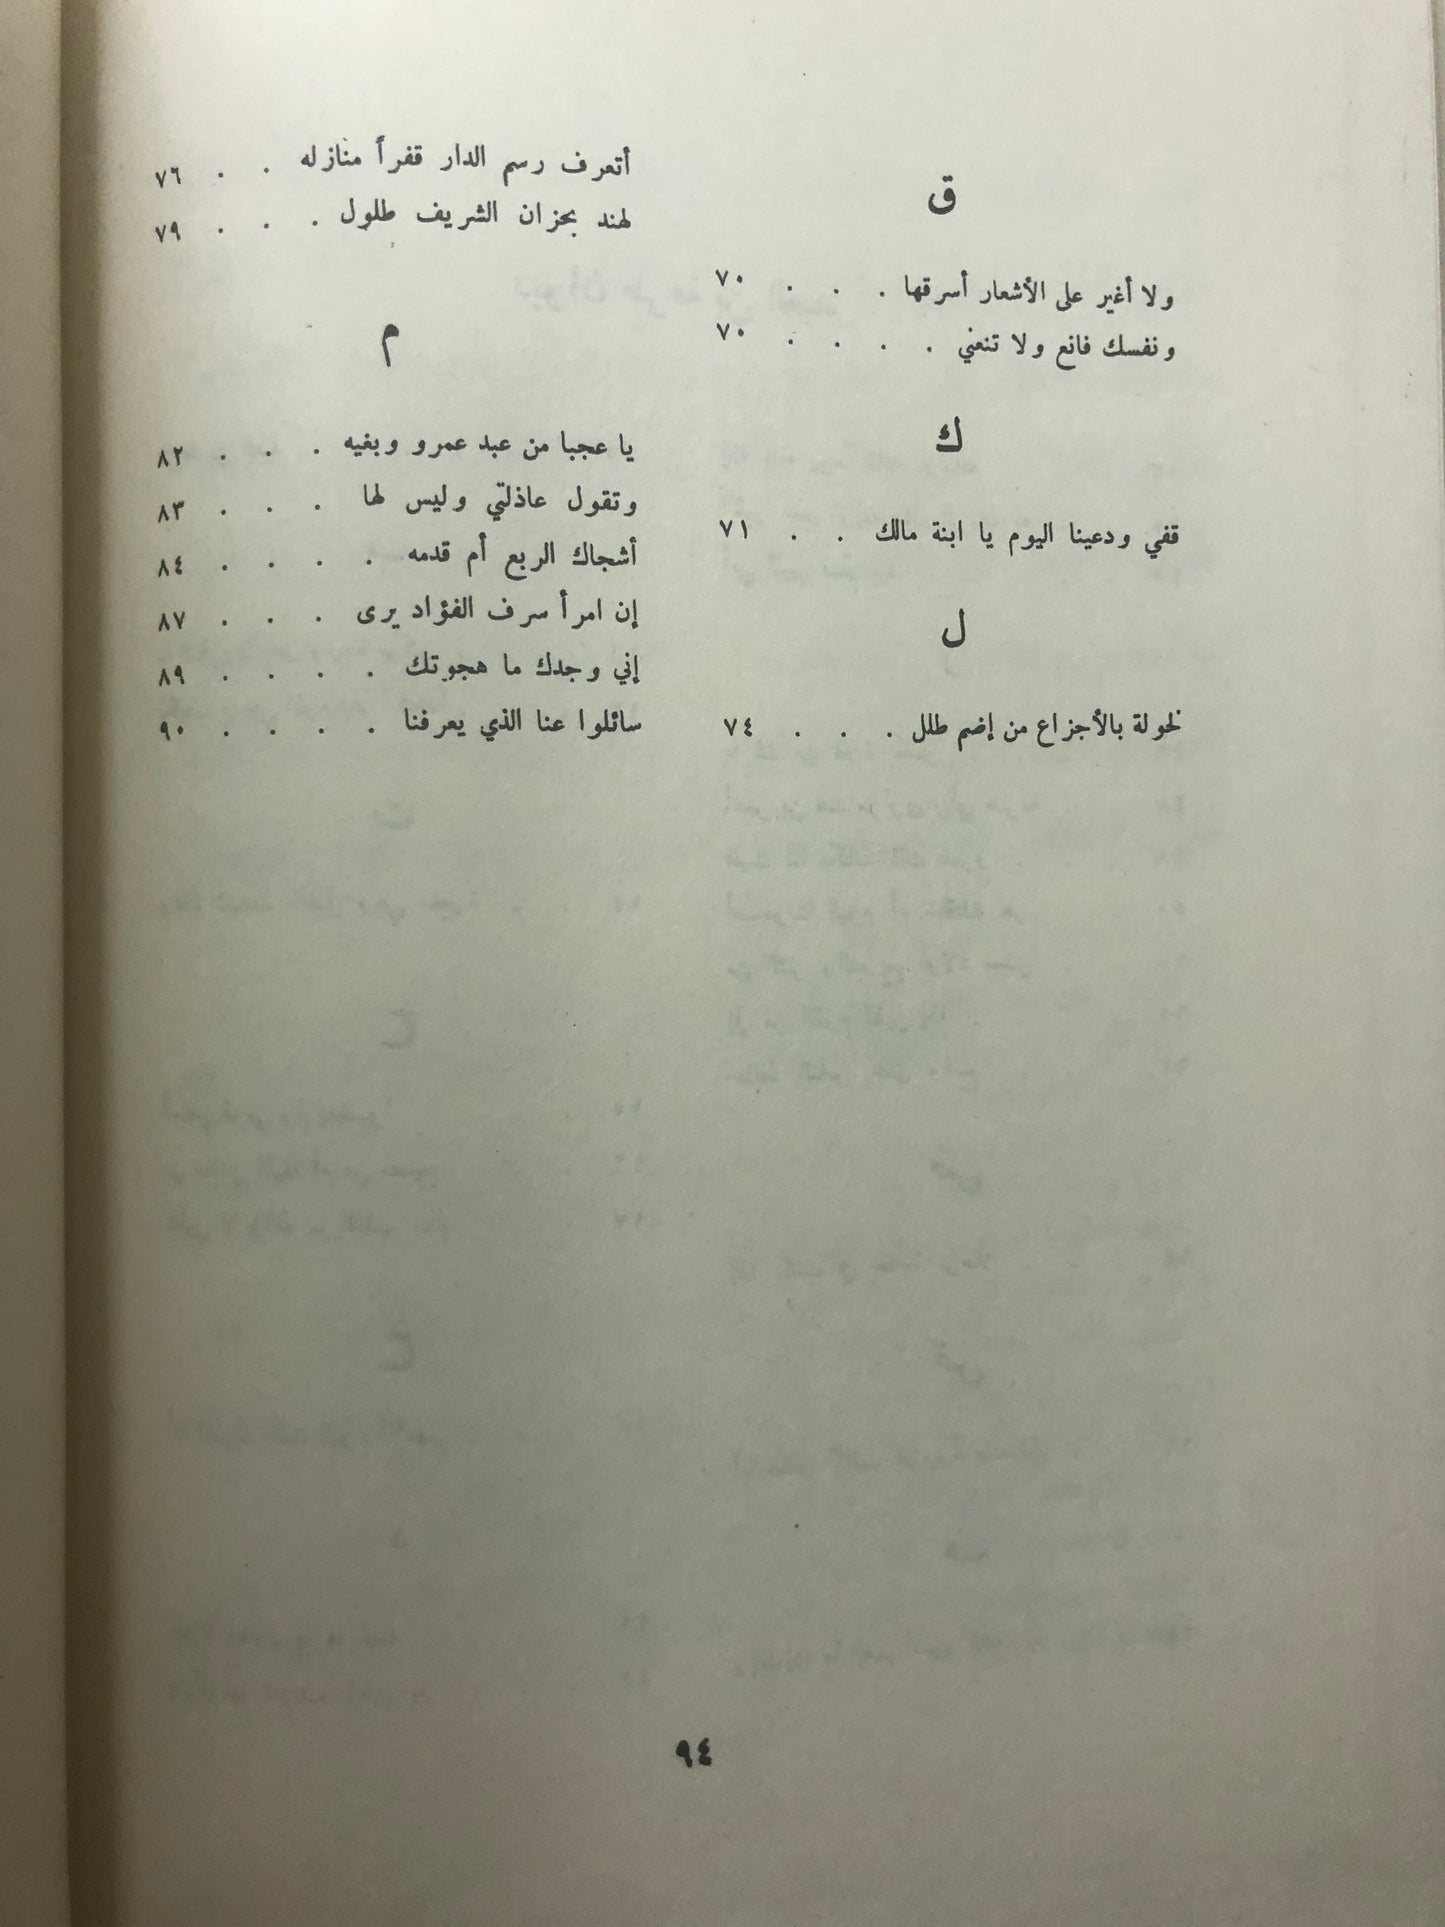 ق
ولا أغير على الأشعار أسرقها . . . ٧٠
ونفسك فانع ولا تنعني . . . . ٧٠
ك
قفي ودعينا اليوم يا ابنة مالك . . ٧١
ل
لخولة بالأجزاع من إضم طلل . . . ٧٤
أتعرف رسم الدار قفراً منازله . . ٧٦
لهند بحزان الشريف طلول . . . ٧٩
م
يا عجبا من عبد عمرو وبغيه . . . ٨٢
وتقول عاذلتي وليس لها . . . ٨٣
أشجاك الربع أم قدمه . . . . ٨٤
إن امرأ سرف الفؤاد يرى . . . ٨٧
إني وجدك ما هجوتك . . . . ٨٩
سائلوا عنا الذي يعرفنا . . . . ٩٠
٩٤